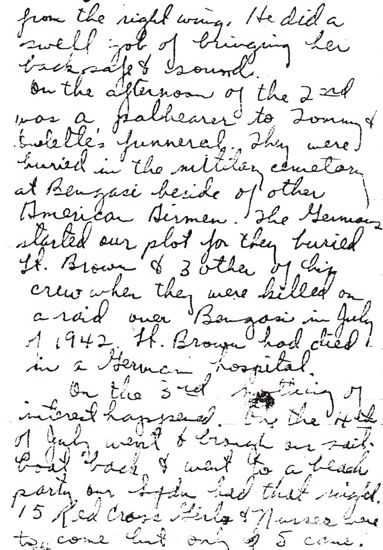 from the right wing. He did a
swell job of bringing her
back safe & sound.
On the afternoon of the 2nd
was a palbearer to Tommy &
funeral. They were
buried in the military cemetary
at Bengasi beside of other
American Airmen. The Germans
started our plot for they buried
Lt. Brown & 3 other of his
crew when they were killed on
a raid over Bengasi in July
of 1942. Lt. Brown had died
in a German hospital.
On the 3rd nothing of
interest happened. On the 4th
of July went & brough our sail
boat back & went to a beach
party our Sqdn had that night.
15 Red Cross Girls & Nurses were
to come but only 5 came.